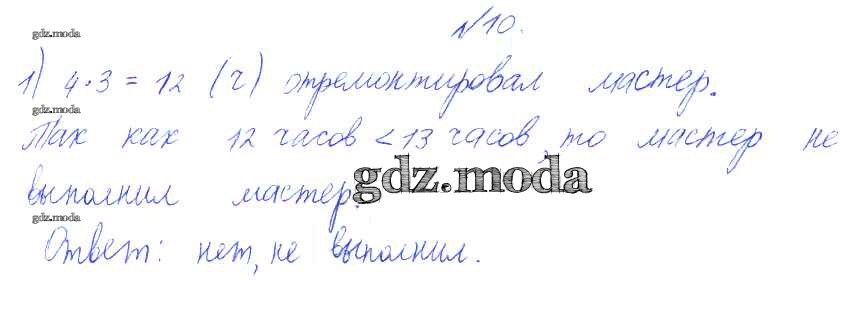 №10.
gdz.moda
1) 4·3=12 (ч) отремонтировал мастер.
gdz.moda
Так как 12 часов < 13 часов, то мастер не
gdz.moda
выполнил мастер.
gdz.moda
Ответ: нет, не выполнил.